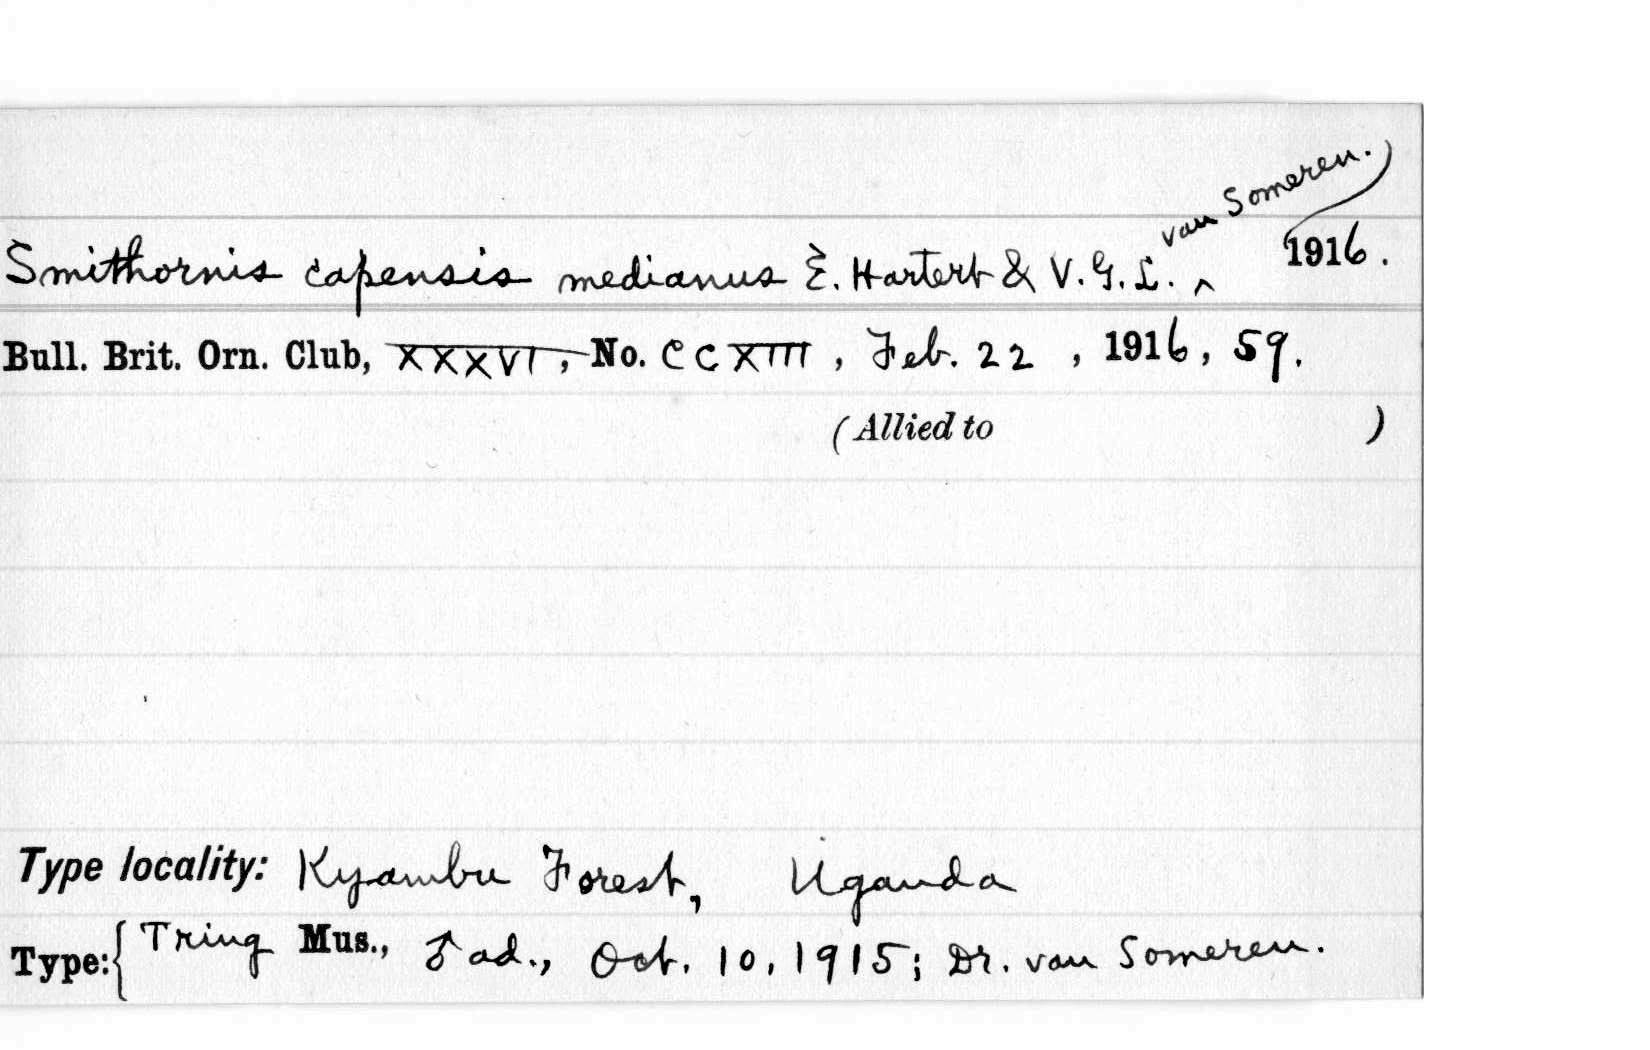 Smithornis capensis medianus E. Hartert & V. G. L. ^ van Someren. 1916.
Bull. Brit. Orn. Club, XXXVI, No. CCXIII, Feb. 22, 1916, 59.
(Allied to )
Type locality: Kyambu Forest, Uganda
Type: { Tring Mus., ♂ ad., Oct. 10, 1915; Dr. van Someren.